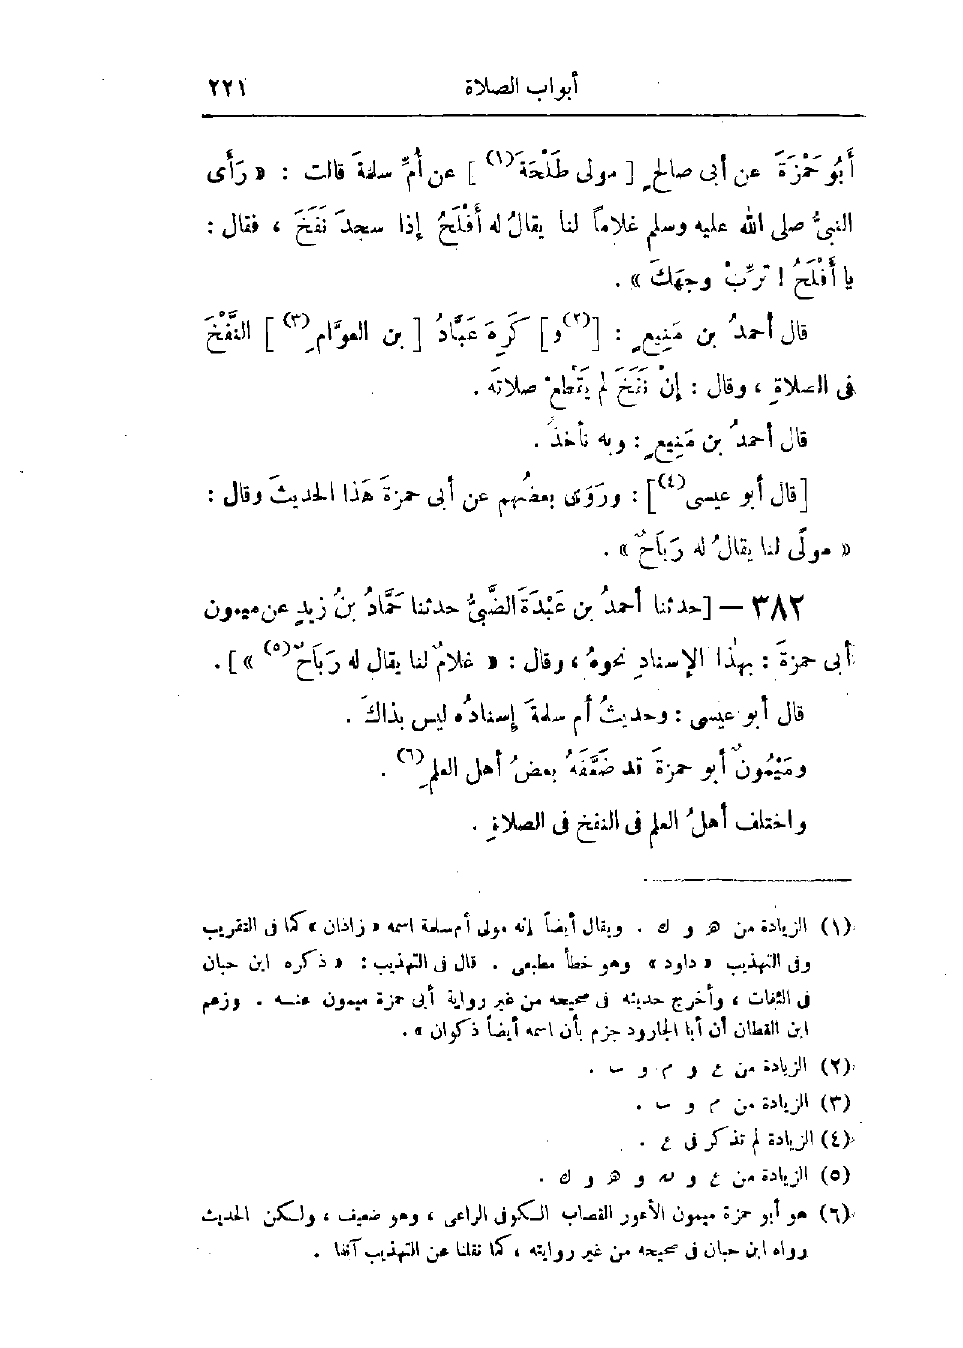 أبواب الصلاة ٢٢١
أَبُو حَمْزَةَ عن أبى صالحٍ [ مولى طَلْحَةَ (١) ] عن أُمِّ سلمةَ قالت : « رَأَى
النبىُّ صلى الله عليه وسلم غلاماً لنا يقالُ له أَفْلَحُ إذا سجدَ نَفَخَ ، فقال :
يا أَفْلَحُ ! تَرِّبْ وجهَكَ » .
قال أحمدُ بن مَنِيعٍ : [(٢) و] كَرِهَ عَبَّادُ [ بن العوَّامِ (٣) ] النَّفْخَ
فى الصلاةِ ، وقال : إنْ نَفَخَ لم يَقْطَعْ صلاتَه .
قال أحمدُ بن مَنِيعٍ : وبه نأخذُ .
[قال أبو عيسى (٤)] : ورَوَى بعضُهم عن أبى حمزةَ هَذا الحديثَ وقال :
« مولًى لنا يقالُ له رَبَاحٌ » .
٣٨٢ — [حدثنا أحمدُ بن عَبْدَةَ الضَّبِّىُّ حدثنا حَمَّادُ بنُ زيدٍ عن ميمون
أبى حمزةَ : بهٰذا الإسنادِ نحوهُ ، وقال : « غلامٌ لنا يقال له رَبَاحٌ (٥) »] .
قال أبو عيسى : وحديثُ أم سلمةَ إسنادُه ليس بذاكَ .
ومَيْمُونٌ أبو حمزةَ قد ضَعَّفَهُ بعضُ أهل العلمِ (٦) .
واختلف أهلُ العلم فى النفخ فى الصلاةِ .
(١) الزيادة من هـ و ك . ويقال أيضاً إنه مولى أم سلمة اسمه « زاذان » كما فى التقريب
وفى التهذيب « داود » وهو خطأ مطبعى . قال فى التهذيب : « ذكره ابن حبان
فى الثقات ، وأخرج حديثه فى صحيحه من غير رواية أبى حمزة ميمون عنه . وزعم
ابن القطان أن أبا الجارود جزم بأن اسمه أيضاً ذكوان » .
(٢) الزيادة من ع و م و ب .
(٣) الزيادة من م و ب .
(٤) الزيادة لم تذكر فى ع .
(٥) الزيادة من ع و نه و هـ و ك .
(٦) هو أبو حمزة ميمون الأعور القصاب الكوفى الراعى ، وهو ضعيف ، ولكن الحديث
رواه ابن حبان فى صحيحه من غير روايته ، كما نقلنا عن التهذيب آنفا .